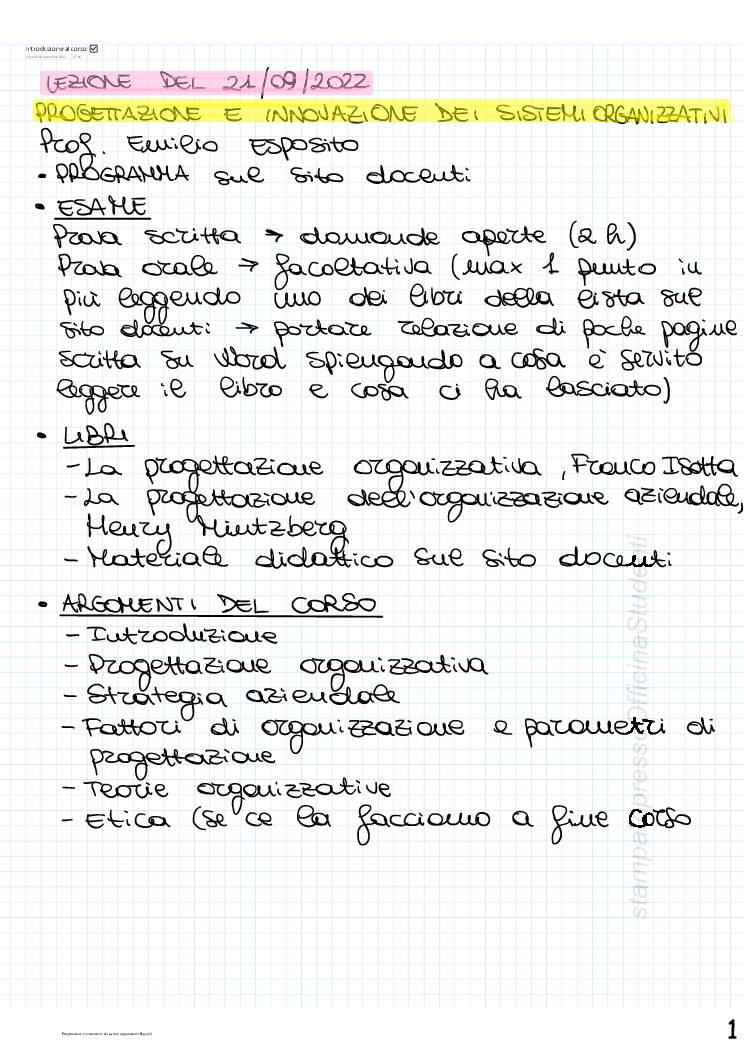 Introduzione al corso
LEZIONE DEL 21/09/2022
PROGETTAZIONE E INNOVAZIONE DEI SISTEMI ORGANIZZATIVI
Prof. Emilio Esposito
• PROGRAMMA sul sito docenti
• ESAME
Prova scritta → domande aperte (2 h)
Prova orale → facoltativa (max 1 punto in
più leggendo uno dei libri della lista sul
sito docenti → portare relazione di poche pagine
scritta su Word spiegando a cosa è servito
leggere il libro e cosa ci ha lasciato)
• LIBRI
- La progettazione organizzativa, Franco Isotta
- La progettazione dell'organizzazione aziendale,
Henry Mintzberg
- Materiale didattico sul sito docenti
• ARGOMENTI DEL CORSO
- Introduzione
- Progettazione organizzativa
- Strategia aziendale
- Fattori di organizzazione e parametri di
progettazione
- Teorie organizzative
- Etica (se ce la facciamo a fine corso
stampa presso OfficinaStudenti
1